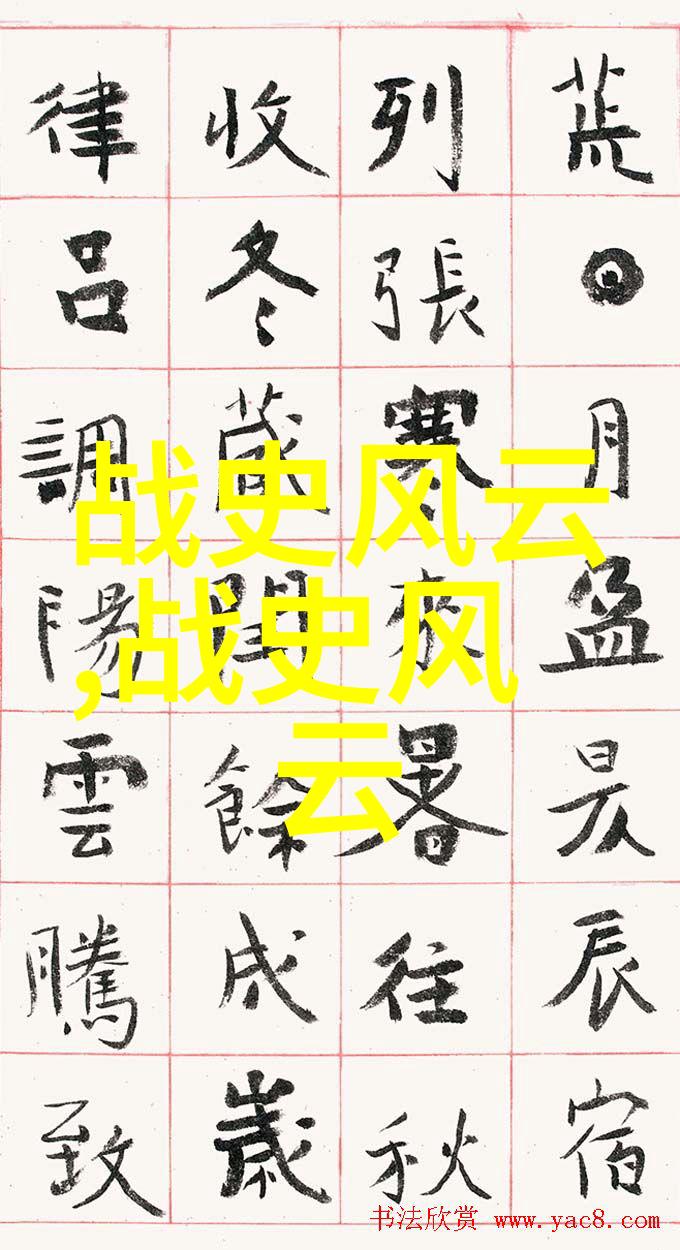 荒日月盈昃辰宿
列張寒來暑往秋
收冬藏閏餘成歲
律呂調陽雲騰致
战史风云
,战史风
云
书法欣赏 www.yac8.com